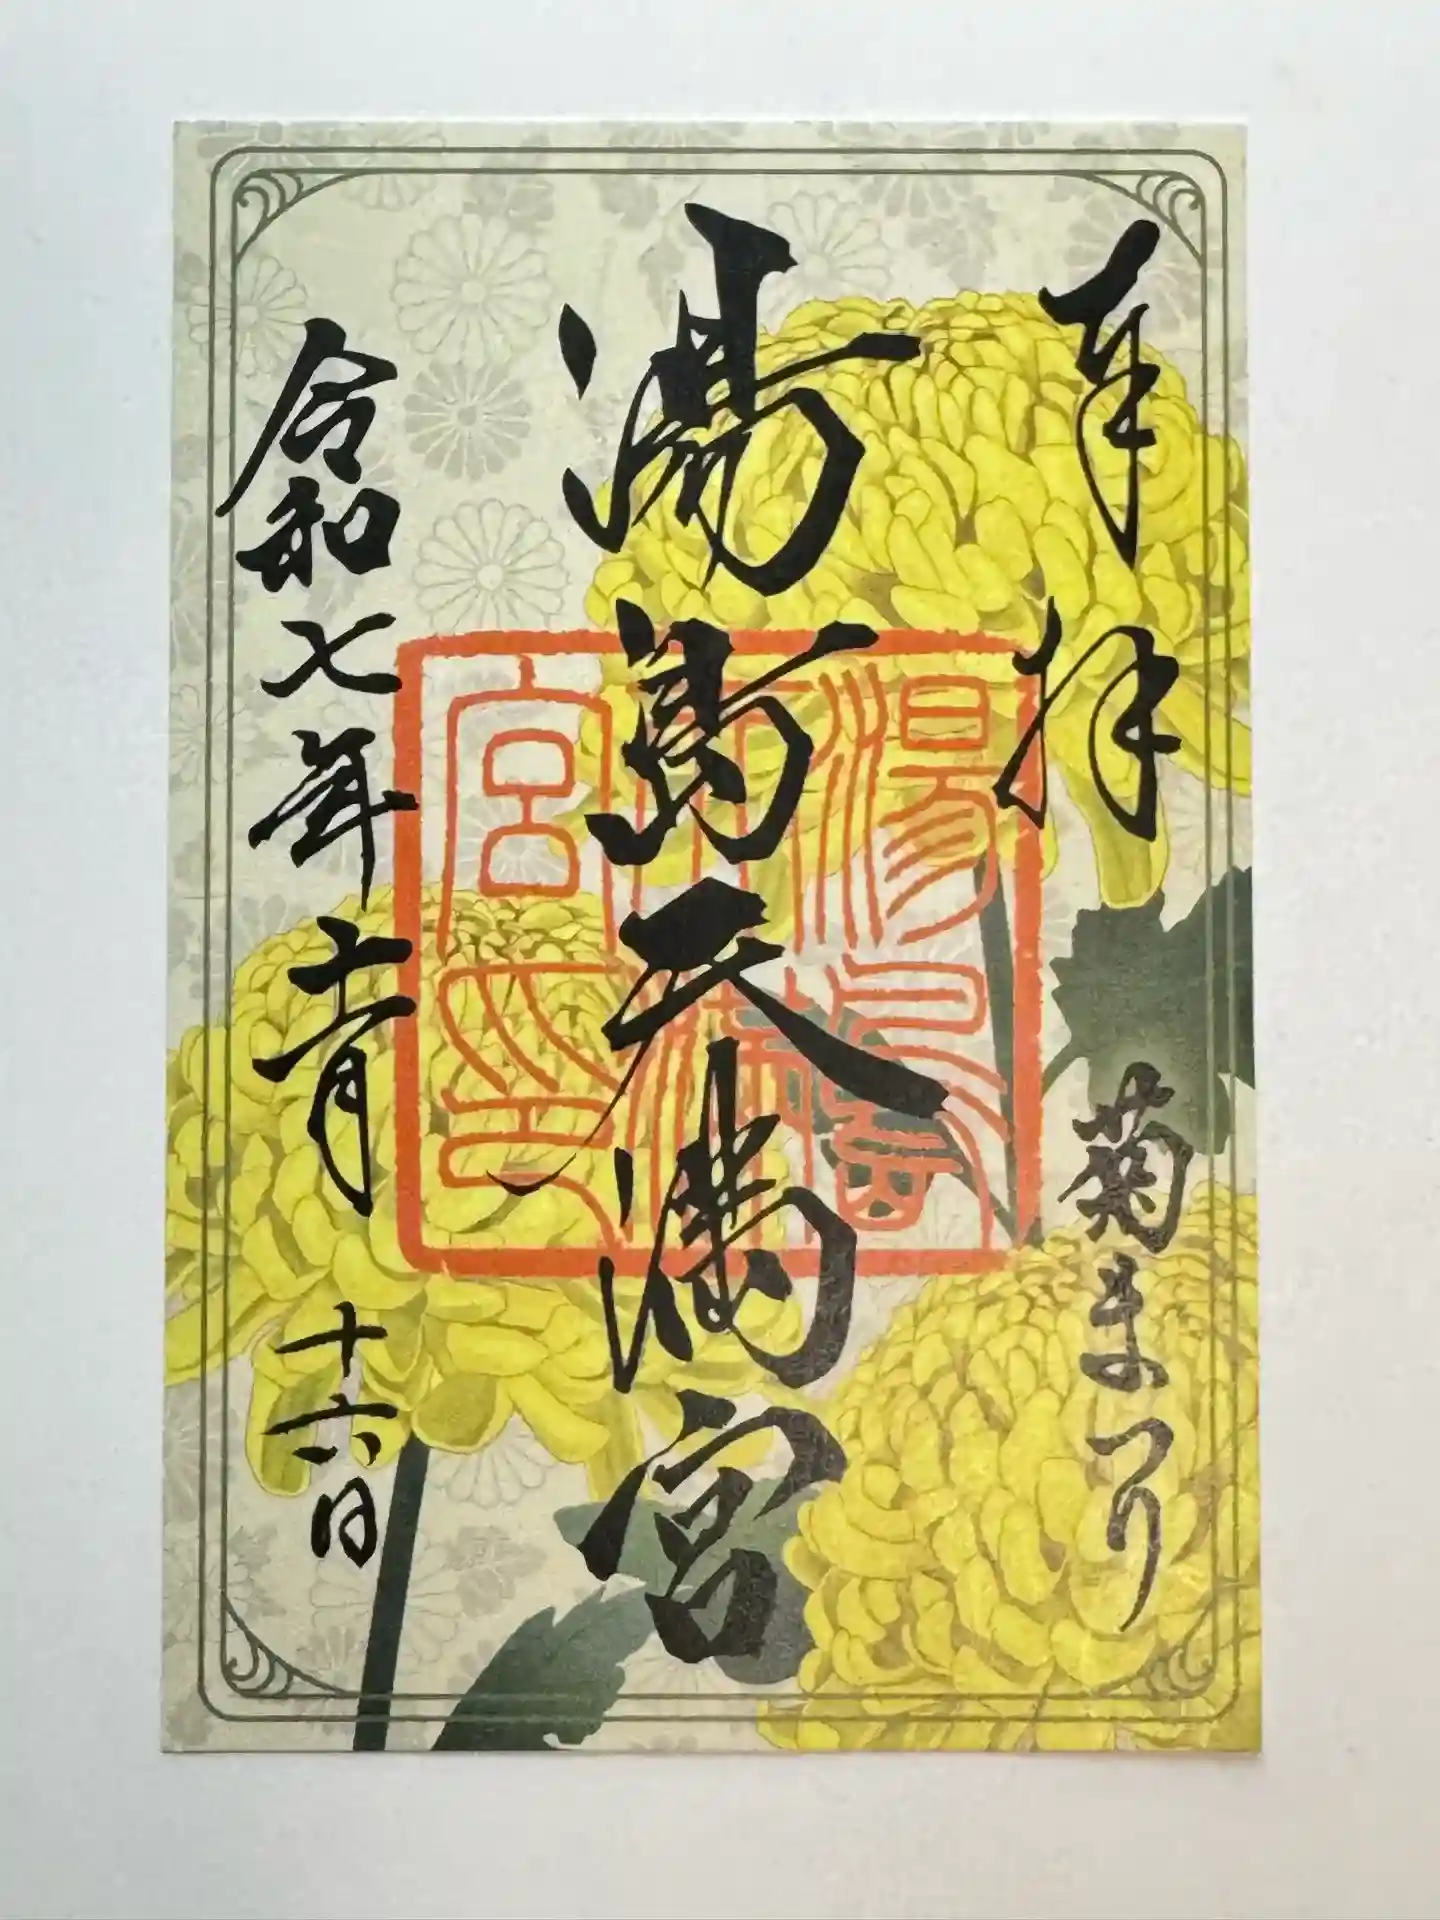 奉拝
菊まつり
湯島天満宮
湯島天満宮印
令和七年十一月十六日